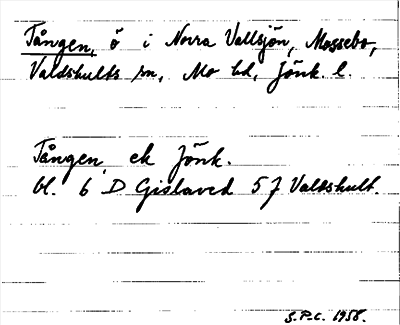 Tången, ö i Norra Vallsjön, Mossebo,
Valdshults sn, Mo hd, Jönk. l.
Tången ek Jönk.
bl. 6 D Gislaved 5 f Valdshult.
S.P.C. 1958.